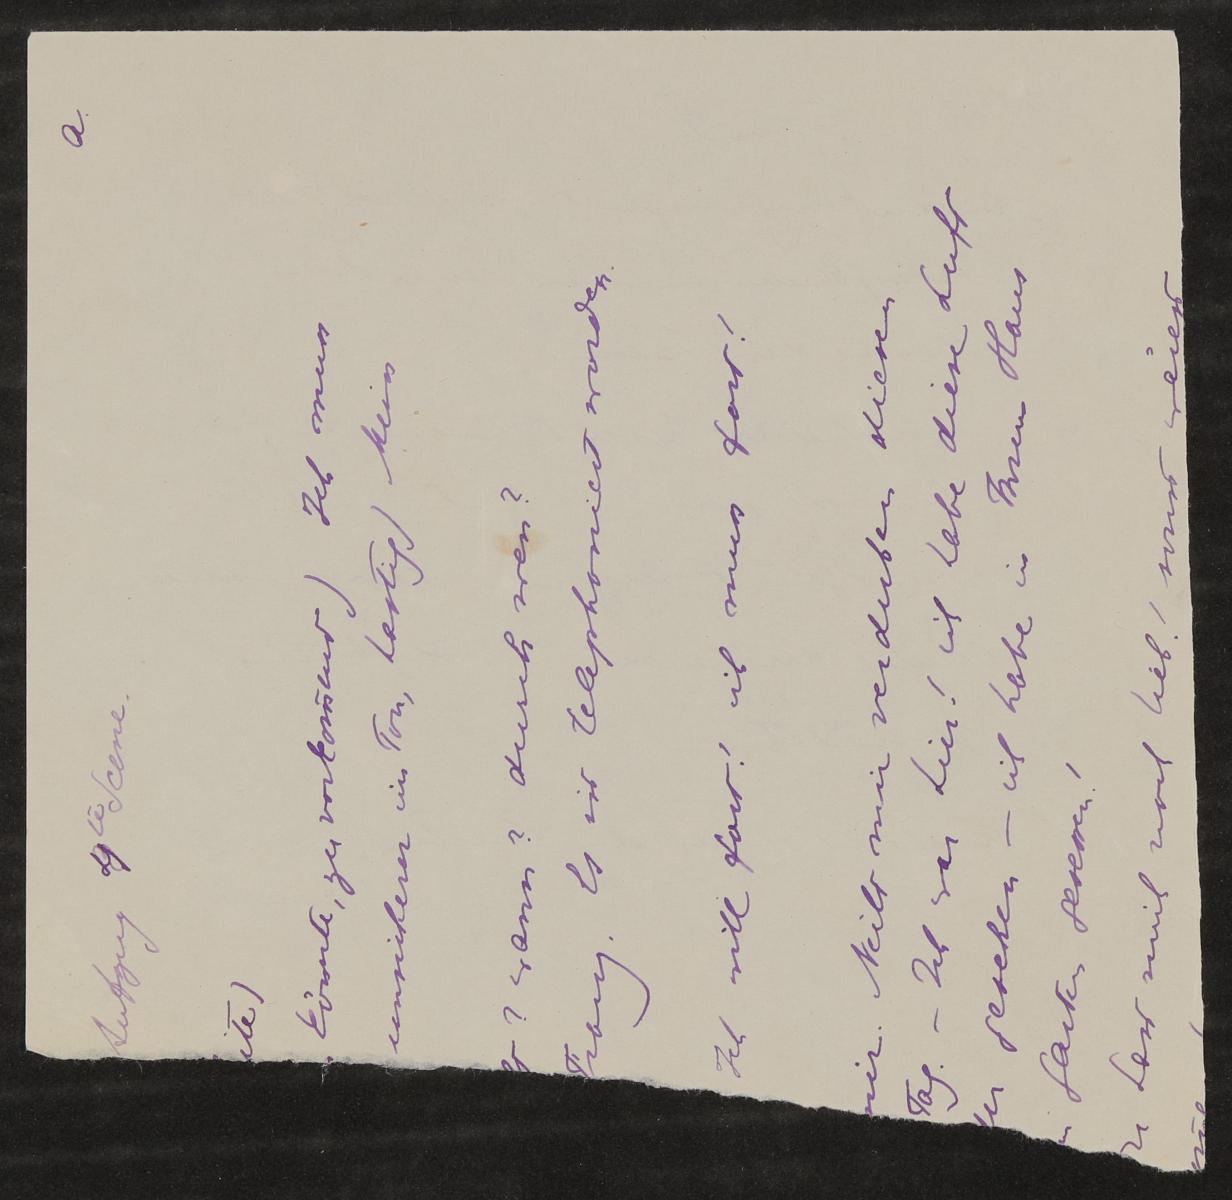 a.
Aufzug 4te Scene.
ite)
könnte, zuvorkomend) Ich muss
unsicherer im Ton, hastig) kein
st? wann? durch wen?
Franz. Es ist telephoniert worden.
Ich will fort! ich muss fort!
mir. Nicht mir verderben diesen
Tag. – Ich war hier! ich habe diese Luft
der gesehen – ich habe in Ihrem Haus
Garten gesessen!
Du hast mich noch lieb! sonst wärest